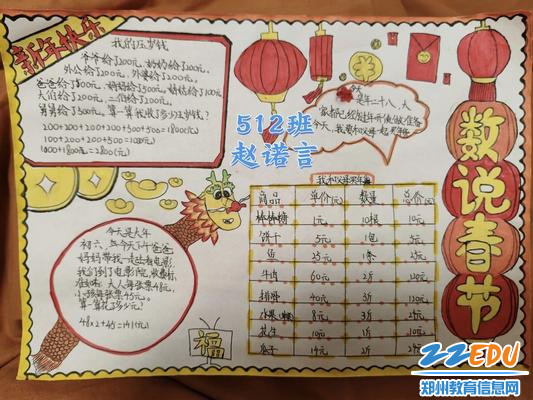 新年快乐
我的压岁钱
爷爷给了200元,奶奶给了200元,
外公给了200元,外婆给了200元,
爸爸给了500元,妈妈给了500元,姑姑给了100元
大伯给了200元,二伯给了200元,
舅舅给了500元,算一算我收了多少压岁钱?
200+200+200+200+500+500=1800(元)
100+200+200+500=1000(元)
1000+1800=2800(元)
今天
是年二十八,大
家都已经
今天,我要和父母一起买年货
512班
赵诺言
数说春节
我和父母买年货
商品 单价(元) 数量 总价(元)
棒棒糖 1元 10根 10元
饼干 5元 1包 5元
鱼 25元 1条 25元
牛肉 60元 2斤 120元
排骨 40元 3斤 120元
水果 8元 3斤 24元
花生 10元 1斤 10元
瓜子 14元 2斤
今天是大年
初六,今天下午爸爸
妈妈带我一起去看电影,
我们到了电影院,收费标
准如下:大人每张票48元,
小孩每张票45元。
算一算花了多少元?
48×2+45=141(元)
福
22EDU
郑州教育信息网